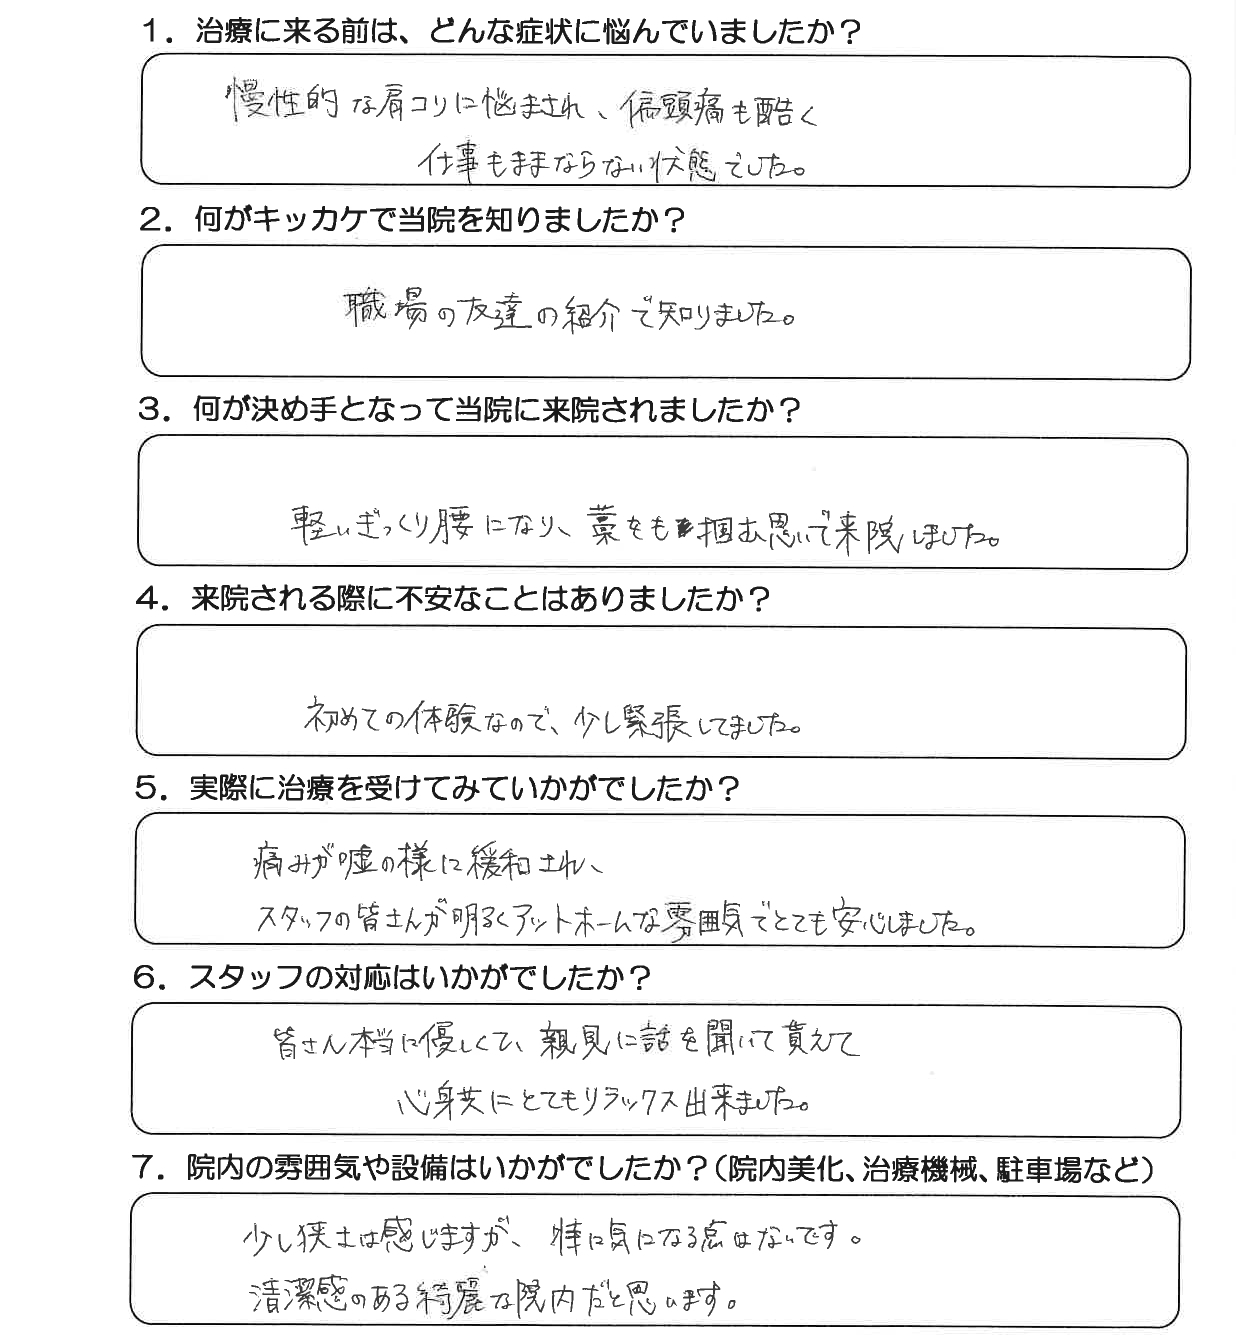 1．治療に来る前は、どんな症状に悩んでいましたか？
慢性的な肩コリに悩まされ、偏頭痛も酷く
仕事もままならない状態でした。
2．何がキッカケで当院を知りましたか？
職場の友達の紹介で知りました。
3．何が決め手となって当院に来院されましたか？
軽いぎっくり腰になり、藁をも掴む思いで来院しました。
4．来院される際に不安なことはありましたか？
初めての体験なので、少し緊張してました。
5．実際に治療を受けてみていかがでしたか？
痛みが嘘の様に緩和され、
スタッフの皆さんが明るくアットホームな雰囲気でとても安心しました。
6．スタッフの対応はいかがでしたか？
皆さん本当に優しくて、親見に話を聞いて貰えて
心身共にとてもリラックス出来ました。
7．院内の雰囲気や設備はいかがでしたか？（院内美化、治療機械、駐車場など）
少し狭さは感じますが、特に気になる点はないです。
清潔感のある綺麗な院内だと思います。